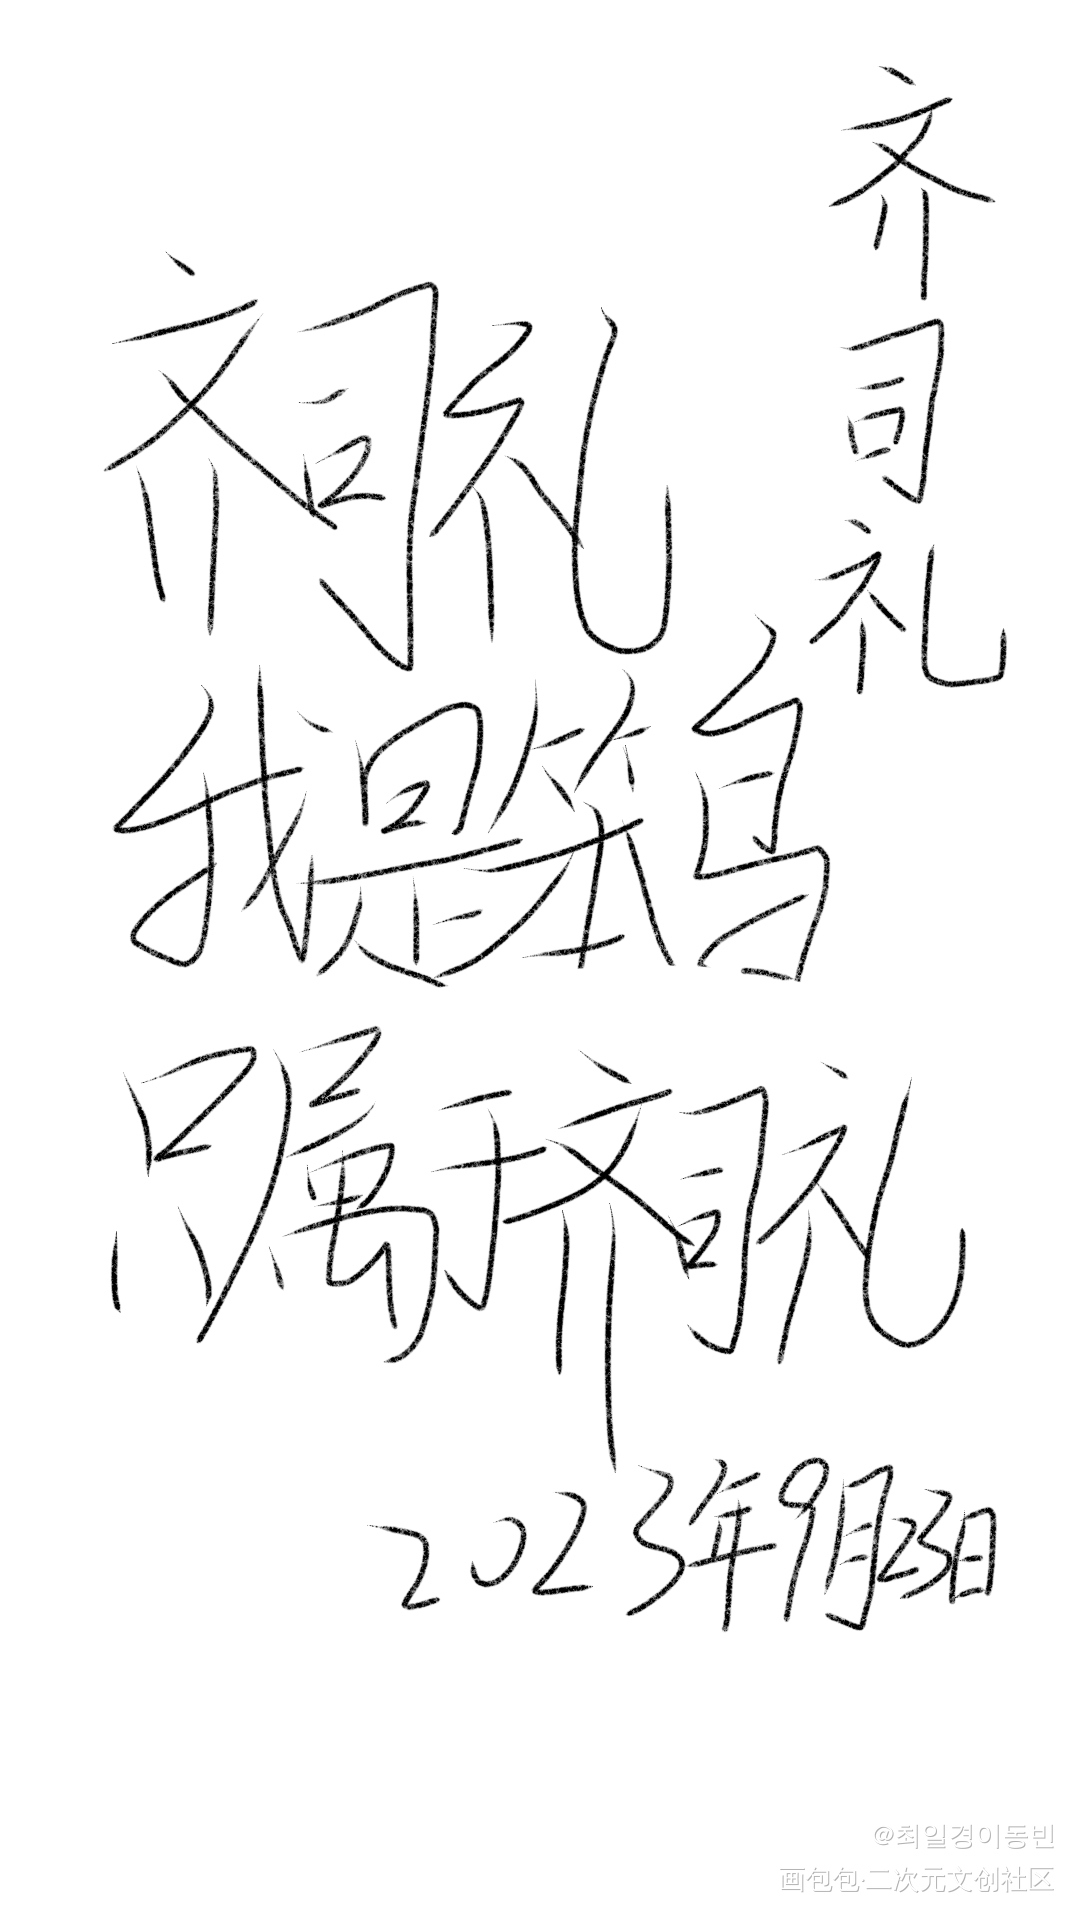 齐司礼
齐司礼
我是笨鸟
只属于齐司礼
2023年9月23日
@최일경이동빈
画包包·二次元文创社区